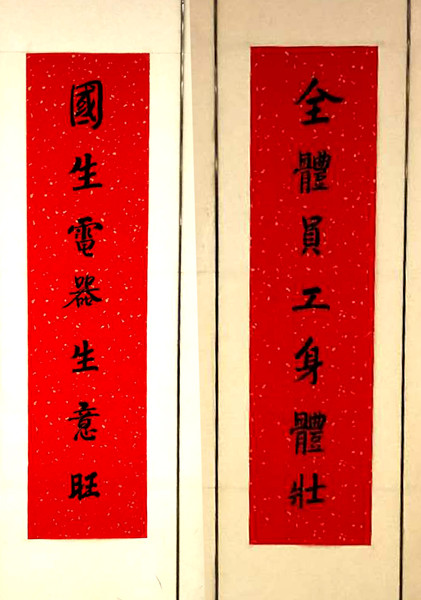 全體員工身體壯
國生電器生意旺